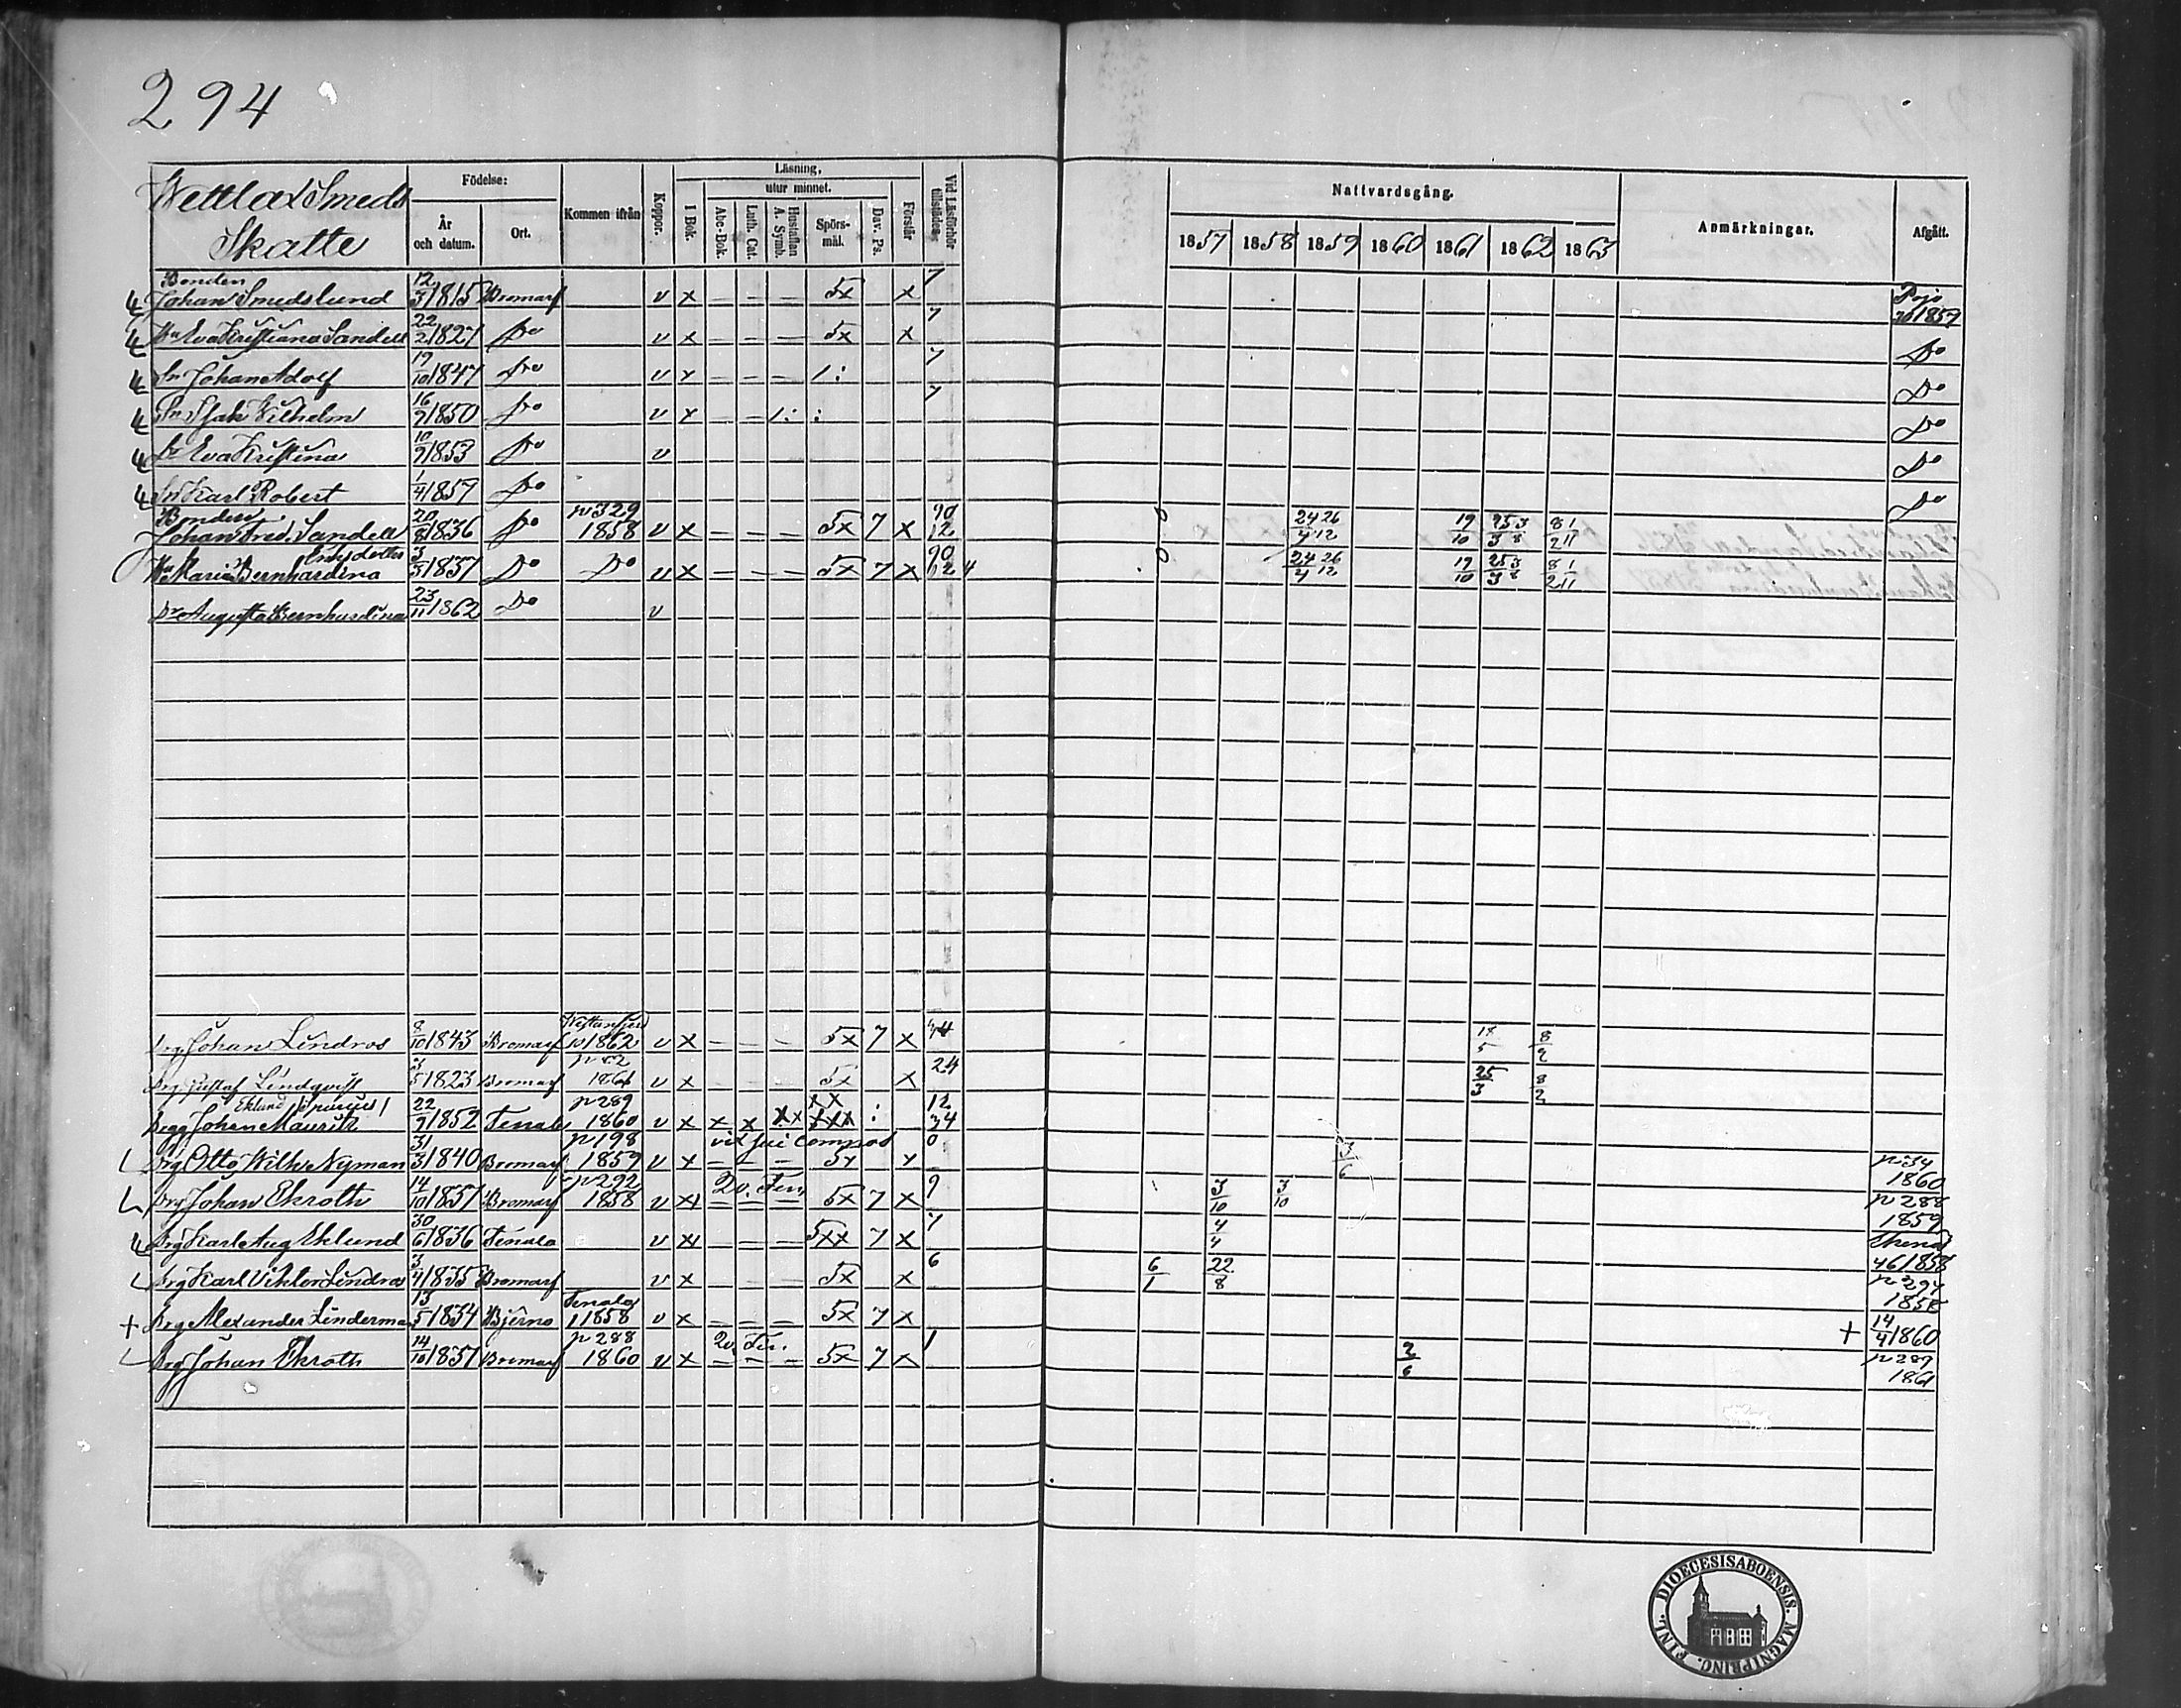 294
Wettlax Smeds
Skatte
Födelse:
År och datum.
Ort.
Kommen ifrån
Koppor.
Läsning,
I Bok.
utur minnet.
Abc-Bok.
Luth. Cat.
Hustaflan A. Symb.
Spörs-mål.
Dav. Ps.
Förstår
Vid Läsförhör tillstädes.
Nattvardsgång.
1857 1858 1859 1860 1861 1862 1863
Anmärkningar.
Afgått.
Bonden
Johan Smedslund 12/5 1815 Bromarf v x – – – 5x x 7 Pojo 1857
Hu Eva Kristiana Sandell 22/2 1827 Do v x – – – 5x x 7 Do
Sn Johan Adolf 19/10 1847 Do v x – – – 7 Do
Sn Isak Wilhelm 16/9 1850 Do v x – – 7 Do
Dr Eva Kristina 10/9 1853 Do v Do
Sn Karl Robert 1/4 1857 Do Do
Bonden
Johan Fred. Sandell 20/8 1836 Do p 329 1858 v x – – – 5x 7 x 24/4 26/12 19/10 25/3 3/8 8/2 1/11
Hu Maria Bernhardina 3/5 1837 Do Do v x – – – 5x 7 x 24/4 26/12 19/10 25/3 3/8 8/2 1/11
Dr Augusta Bernhardina 23/11 1862 Do v
Drg Johan Lindros 8/10 1843 Bromarf 1862 v x – – – 5x 7 x 8/2
Drg Gustaf Lindqvist 1823 Bromarf 1861 v x 5x x 24 25/3 8/2
Eklund
Johan Mauritz 22/9 1852 Tenala p 289 1860 v x x x 12 34
Drg Otto Wilh. Nyman 31/3 1840 Bromarf p 198 1859 v x – – – 5x x 0 3/6 p 34 1860
Drg Johan Ekroth 14/10 1837 Bromarf p 292 1858 v x – – – 5x 7 x 9 3/10 3/10 p 288 1859
Drg Karl Aug Eklund 30/6 1836 Tenala v x – – – 5xx 7 x 7 4/4 1858
Drg Karl Viktor Lindros 3/4 1835 Bromarf v x – – – 5x x 6 6/1 22/8 p 294 1858
+ Drg Alexander Linderman 13/5 1834 Bjerno Tenala 1858 v x – – – 5x 7 x + 14/4 1860
Drg Johan Ekroth 14/10 1837 Bromarf p 288 1860 v x – – – 5x 7 x 1 2/6 p 289 1861
DIOECESIS ABOENSIS. MAGNI PRINC. FINL.